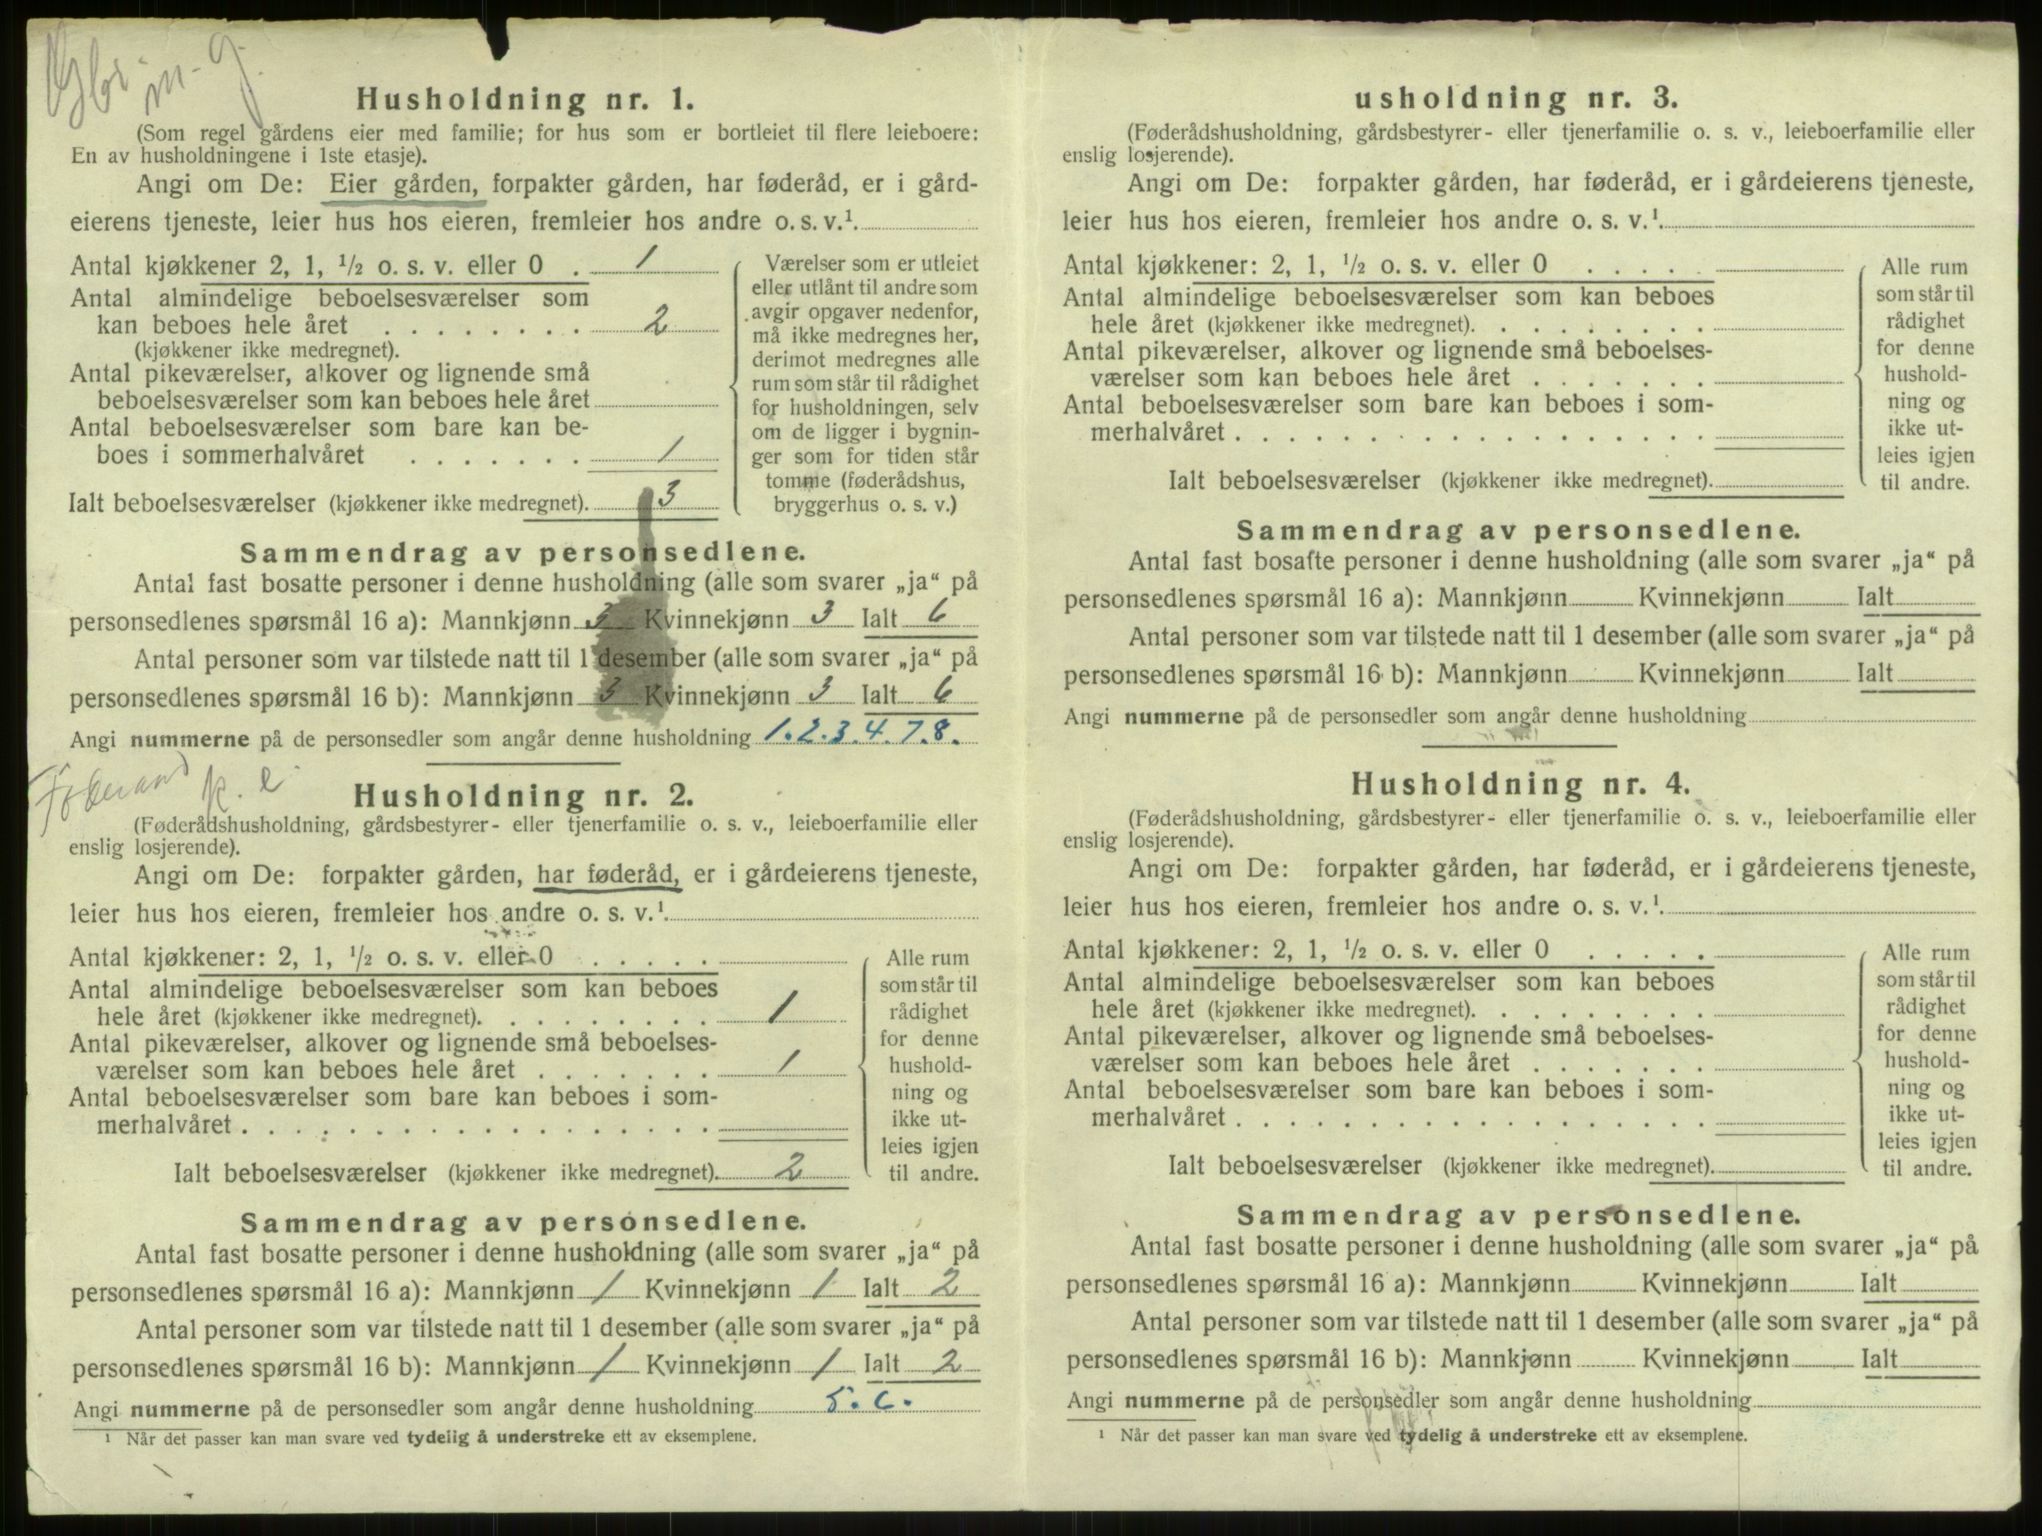 Husholdning nr. 1.
(Som regel gårdens eier med familie; for hus som er bortleiet til flere leieboere:
En av husholdningene i 1ste etasje).
Angi om De: Eier gården, forpakter gården, har føderåd, er i gård-
eierens tjeneste, leier hus hos eieren, fremleier hos andre o. s. v.¹
Antal kjøkkener 2, 1, ½ o. s. v. eller 0 . 1
Antal almindelige beboelsesværelser som
kan beboes hele året . . . . . . . . 2
(kjøkkener ikke medregnet).
Antal pikeværelser, alkover og lignende små
beboelsesværelser som kan beboes hele året
Antal beboelsesværelser som bare kan be-
boes i sommerhalvåret . . . . . . . 1
Ialt beboelsesværelser (kjøkkener ikke medregnet). 3
Værelser som er utleiet
eller utlånt til andre som
avgir opgaver nedenfor,
må ikke medregnes her,
derimot medregnes alle
rum som står til rådighet
for husholdningen, selv
om de ligger i bygnin-
ger som for tiden står
tomme (føderådshus,
bryggerhus o. s. v.)
Sammendrag av personsedlene.
Antal fast bosatte personer i denne husholdning (alle som svarer „ja“ på
personsedlenes spørsmål 16 a): Mannkjønn 3 Kvinnekjønn 3 Ialt 6
Antal personer som var tilstede natt til 1 desember (alle som svarer „ja“ på
personsedlenes spørsmål 16 b): Mannkjønn 3 Kvinnekjønn 3 Ialt 6
Angi nummerne på de personsedler som angår denne husholdning 1.2.3.4.7.8.
Husholdning nr. 2.
(Føderådshusholdning, gårdsbestyrer- eller tjenerfamilie o. s. v., leieboerfamilie eller
enslig losjerende).
Angi om De: forpakter gården, har føderåd, er i gårdeierens tjeneste,
leier hus hos eieren, fremleier hos andre o. s. v.¹
Antal kjøkkener: 2, 1, ½ o. s. v. eller 0 . . . . .
Antal almindelige beboelsesværelser som kan beboes
hele året (kjøkkener ikke medregnet). . . . . . . . . 1
Antal pikeværelser, alkover og lignende små beboelses-
værelser som kan beboes hele året . . . . . . . 1
Antal beboelsesværelser som bare kan beboes i som-
merhalvåret . . . . . . . . . . . . . . . . . .
Ialt beboelsesværelser (kjøkkener ikke medregnet). 2
Alle rum
som står til
rådighet
for denne
hushold-
ning og
ikke ut-
leies igjen
til andre.
Sammendrag av personsedlene.
Antal fast bosatte personer i denne husholdning (alle som svarer „ja“ på
personsedlenes spørsmål 16 a): Mannkjønn 1 Kvinnekjønn 1 Ialt 2
Antal personer som var tilstede natt til 1 desember (alle som svarer „ja“ på
personsedlenes spørsmål 16 b): Mannkjønn 1 Kvinnekjønn 1 Ialt 2
Angi nummerne på de personsedler som angår denne husholdning 5.6.
¹ Når det passer kan man svare ved tydelig å understreke ett av eksemplene.
usholdning nr. 3.
(Føderådshusholdning, gårdsbestyrer- eller tjenerfamilie o. s. v., leieboerfamilie eller
enslig losjerende).
Angi om De: forpakter gården, har føderåd, er i gårdeierens tjeneste,
leier hus hos eieren, fremleier hos andre o. s. v.¹
Antal kjøkkener: 2, 1, ½ o. s. v. eller 0 . . . . .
Antal almindelige beboelsesværelser som kan beboes
hele året (kjøkkener ikke medregnet). . . . . . . . .
Antal pikeværelser, alkover og lignende små beboelses-
værelser som kan beboes hele året . . . . . . .
Antal beboelsesværelser som bare kan beboes i som-
merhalvåret . . . . . . . . . . . . . . . . . .
Ialt beboelsesværelser (kjøkkener ikke medregnet).
Alle rum
som står til
rådighet
for denne
hushold-
ning og
ikke ut-
leies igjen
til andre.
Sammendrag av personsedlene.
Antal fast bosatte personer i denne husholdning (alle som svarer „ja“ på
personsedlenes spørsmål 16 a): Mannkjønn Kvinnekjønn Ialt
Antal personer som var tilstede natt til 1 desember (alle som svarer „ja“ på
personsedlenes spørsmål 16 b): Mannkjønn Kvinnekjønn Ialt
Angi nummerne på de personsedler som angår denne husholdning
Husholdning nr. 4.
(Føderådshusholdning, gårdsbestyrer- eller tjenerfamilie o. s. v., leieboerfamilie eller
enslig losjerende).
Angi om De: forpakter gården, har føderåd, er i gårdeierens tjeneste,
leier hus hos eieren, fremleier hos andre o. s. v.¹
Antal kjøkkener: 2, 1, ½ o. s. v. eller 0 . . . . .
Antal almindelige beboelsesværelser som kan beboes
hele året (kjøkkener ikke medregnet). . . . . . . . .
Antal pikeværelser, alkover og lignende små beboelses-
værelser som kan beboes hele året . . . . . . .
Antal beboelsesværelser som bare kan beboes i som-
merhalvåret . . . . . . . . . . . . . . . . . .
Ialt beboelsesværelser (kjøkkener ikke medregnet).
Alle rum
som står til
rådighet
for denne
hushold-
ning og
ikke ut-
leies igjen
til andre.
Sammendrag av personsedlene.
Antal fast bosatte personer i denne husholdning (alle som svarer „ja“ på
personsedlenes spørsmål 16 a): Mannkjønn Kvinnekjønn Ialt
Antal personer som var tilstede natt til 1 desember (alle som svarer „ja“ på
personsedlenes spørsmål 16 b): Mannkjønn Kvinnekjønn Ialt
Angi nummerne på de personsedler som angår denne husholdning
¹ Når det passer kan man svare ved tydelig å understreke ett av eksemplene.